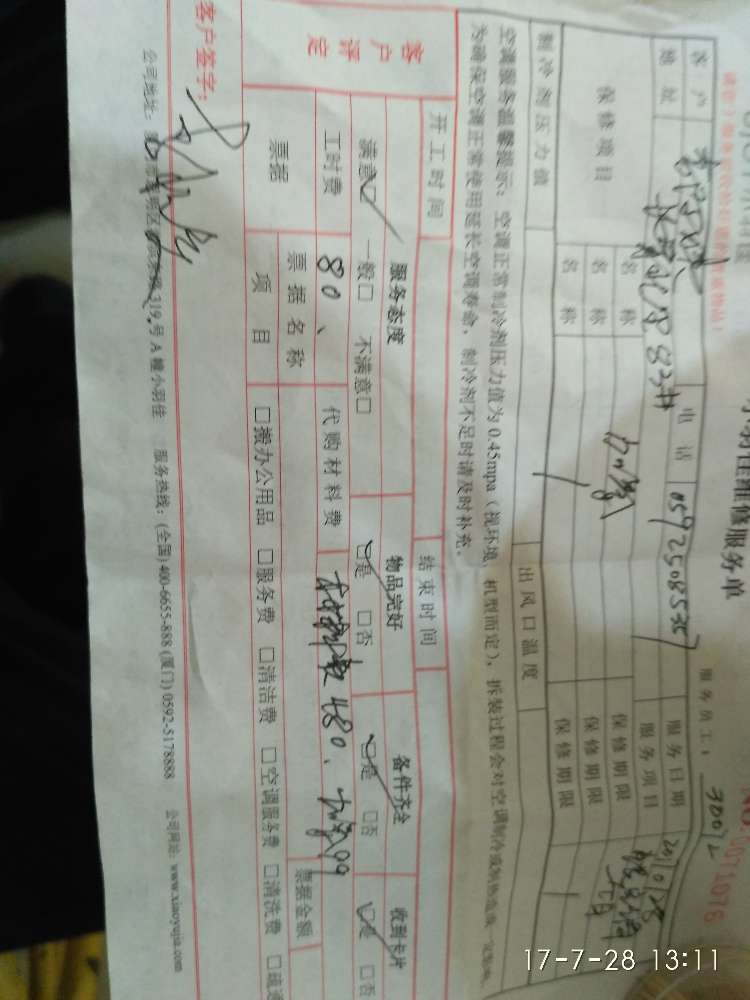 小羽佳维修服务单
NO.0071076
服务员工：
客户
电话 05925085357
服务日期
地址
服务项目
保修项目
名称 加氟 保修期限
名称 保修期限
名称 保修期限
制冷剂压力值 出风口温度
空调服务温馨提示：空调正常制冷剂压力值为0.45mpa（视环境、机型而定），拆装过程会对空调制冷或制热造成一定影响，
为确保空调正常使用延长空调寿命，制冷剂不足时请及时补充。
开工时间 结束时间
客户评定
服务态度 物品完好 备件齐全 收到卡片
满意☑ 一般□ 不满意□ ☑是 □否 ☑是 □否 ☑是 □否
工时费 80、 代购材料费 材料费480、加氟99
票据 票据名称 票据金额
项目 □搬办公用品 □服务费 □清洁费 □空调服务费 □清洗费 □疏通
客户签字：
公司地址： 319号A幢小羽佳 服务热线：(全国)400-6655-888 (厦门)0592-5178888 公司网站：www.xiaoyujia.com
17-7-28 13:11